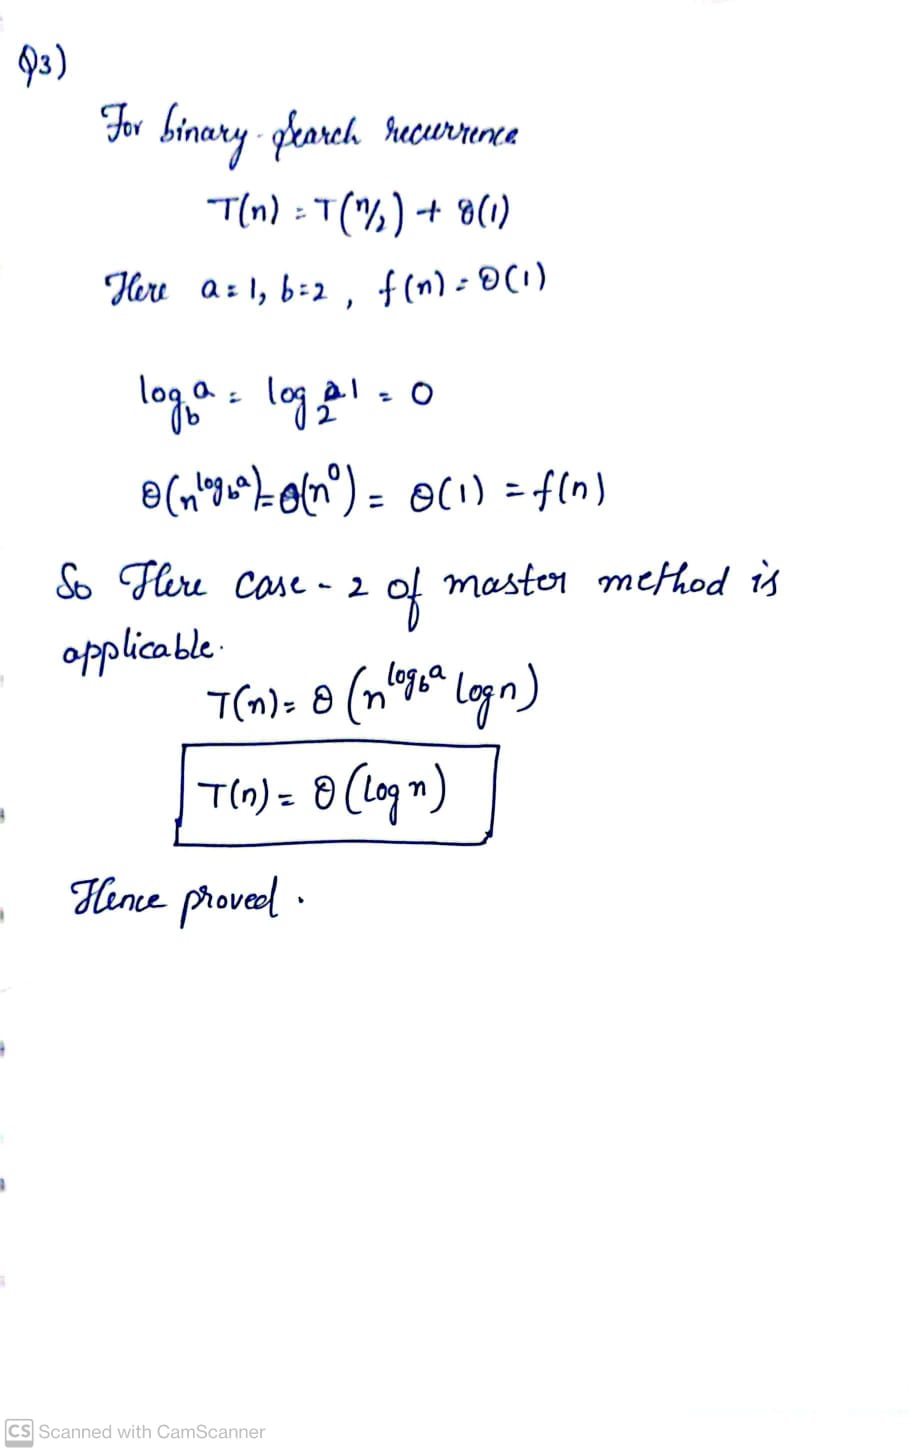 Q3)
For binary-search recurrence
T(n) = T(n/2) + θ(1)
Here a=1, b=2, f(n) = θ(1)
log_b a = log_2 1 = 0
θ(n^log_b a) = θ(n^0) = θ(1) = f(n)
So Here case-2 of master method is
applicable.
T(n) = θ(n^log_b a log n)
T(n) = θ(log n)
Hence proved.
CS Scanned with CamScanner